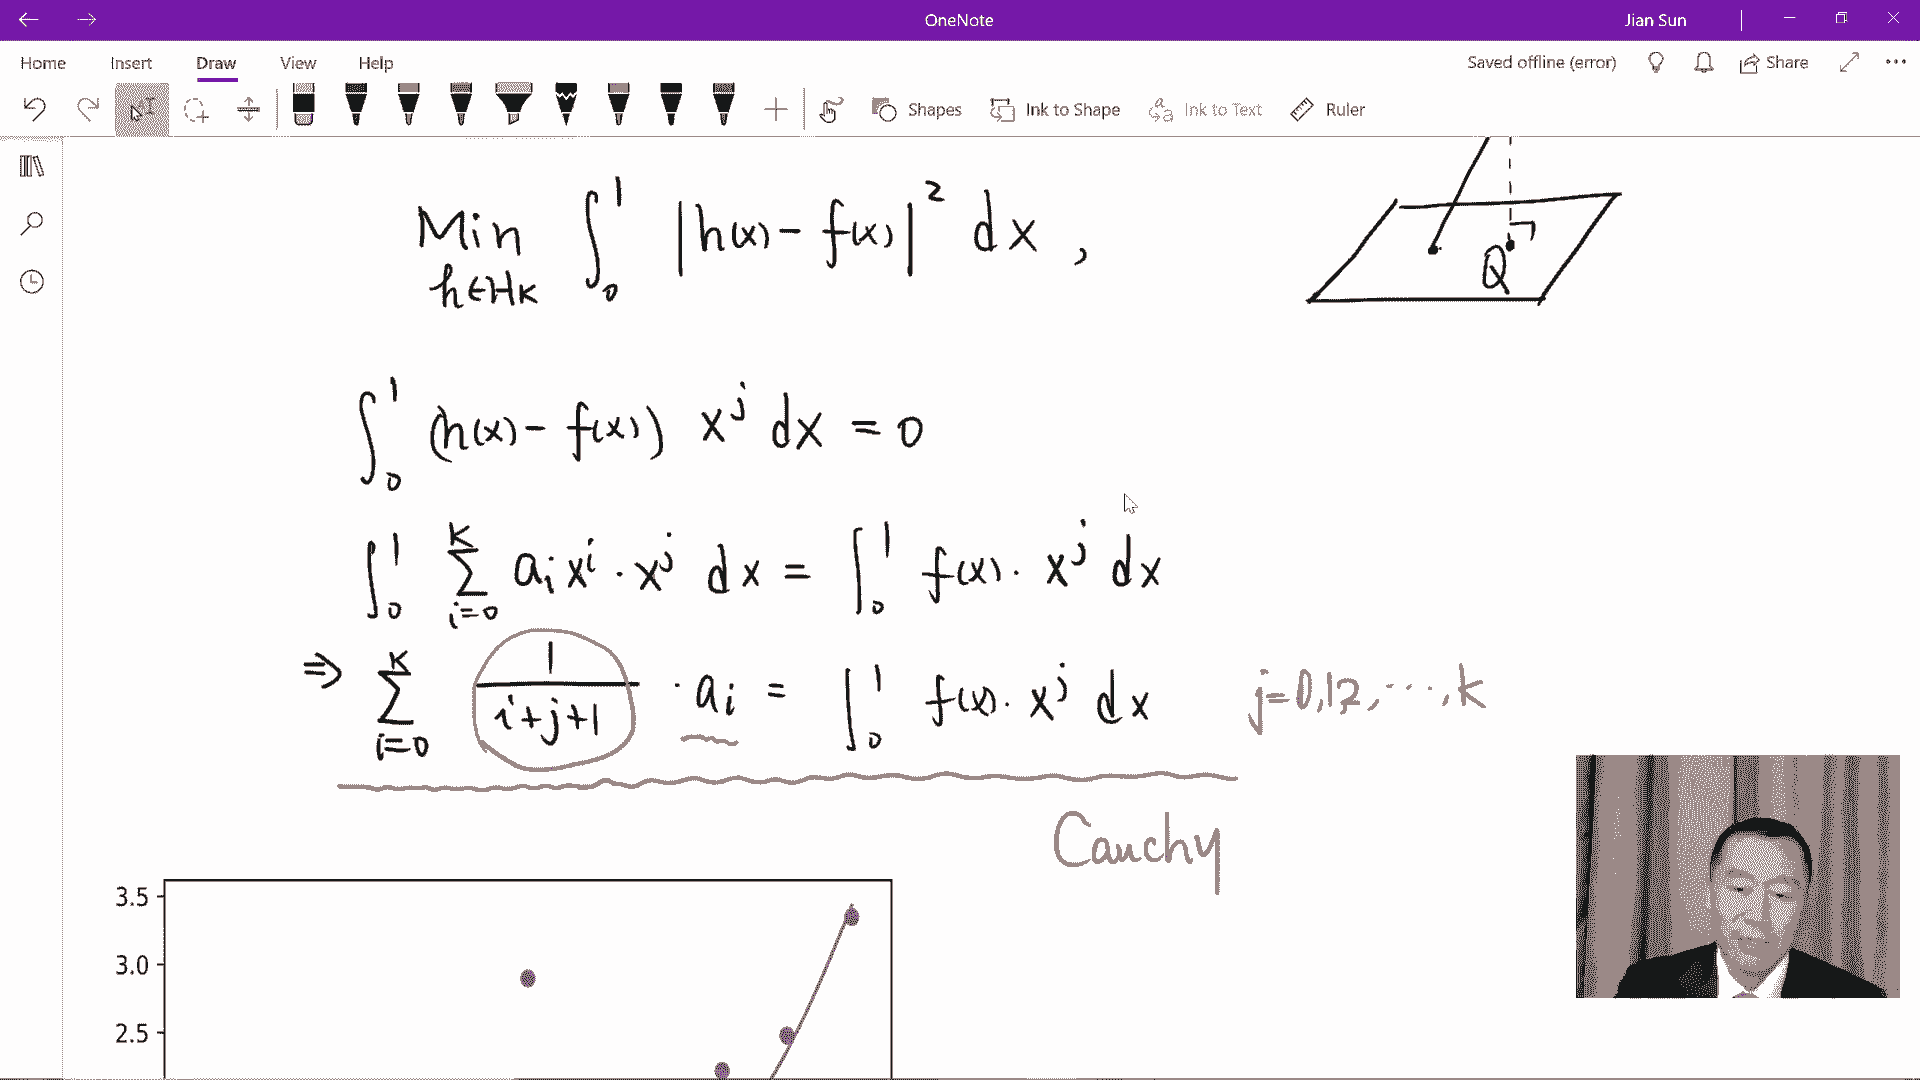 OneNote
Jian Sun
Home Insert Draw View Help
Saved offline (error)
Share
Shapes
Ink to Shape
Ink to Text
Ruler
Min ∫₀¹ |h(x) - f(x)|² dx ,
h∈Hk
Q
∫₀¹ (h(x) - f(x)) x^j dx = 0
∫₀¹ Σ_{i=0}^{K} a_i x^i · x^j dx = ∫₀¹ f(x) · x^j dx
⇒ Σ_{i=0}^{K} 1/(i+j+1) · a_i = ∫₀¹ f(x) · x^j dx j=0,1,2,⋯,k
Cauchy
3.5
3.0
2.5